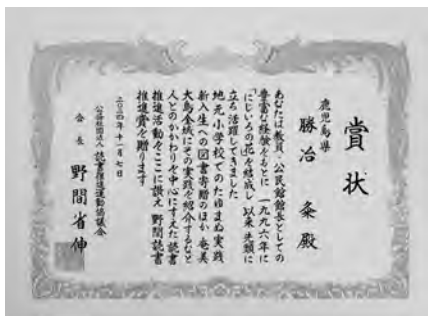 賞状
鹿児島県
勝治 粂殿
あなたは教員・公民館館長としての
豊富な経験をもとに 一九九六年に
「にじいろの花」を結成し 以来 先頭に
立ち 活躍してきました
地元小学校でのたゆまぬ実践
新入生への図書寄贈のほか 奄美
大島全域にその実践を紹介するなど
人とのかかわりを中心にすえた読書
推進活動をここに讃え 野間読書
推進賞を贈ります
二〇二四年十一月七日
公益社団法人 読書推進運動協議会
会長 野間省伸